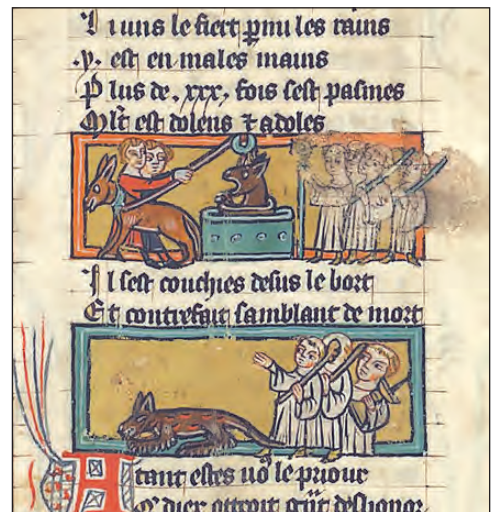 L i uns le fiert pmi les rains
.y. est en males mains
P lus de .xxx. fois sest pasmes
M lt est dolens ⁊ adoles
I l sest couchies desus le bort
E t contrefait samblant de mort
A tant estes uoˢ le priour
diex otroit